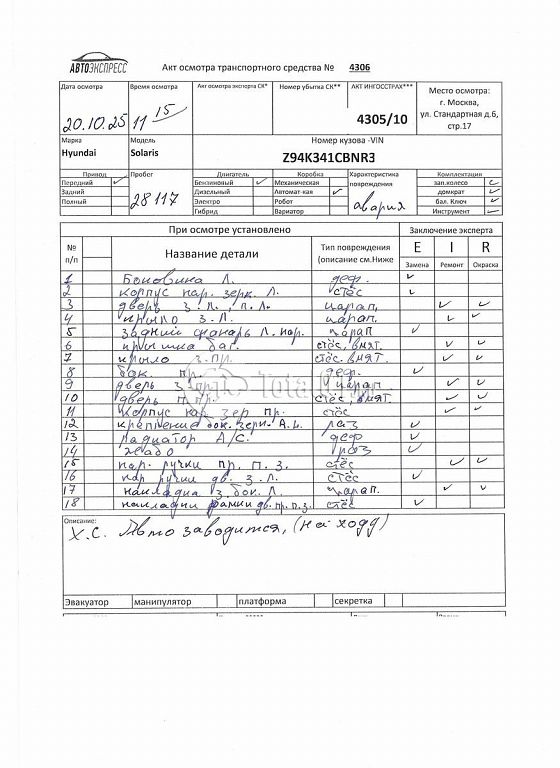 АВТОЭКСПРЕСС
Акт осмотра транспортного средства № 4306
Дата осмотра Время осмотра Акт осмотра эксперта СК* Номер убытка СК** АКТ ИНГОССТРАХ*** Место осмотра:
20.10.25 11 15 4305/10 г. Москва,
ул. Стандартная д.6,
стр.17
Марка Модель Номер кузова -VIN
Hyundai Solaris Z94K341CBNR3
Привод Пробег Двигатель Коробка Характеристика повреждения Комплектация
Передний ✓ 28117 Бензиновый ✓ Механическая авария зап.колесо ✓
Задний Дизельный Автомат-кая ✓ домкрат ✓
Полный Электро Робот бал. Ключ ✓
Гибрид Вариатор Инструмент ✓
При осмотре установлено Заключение эксперта
№ п/п Название детали Тип повреждения (описание см.Ниже E I R
Замена Ремонт Окраска
1 Боковина Л. деф. ✓
2 корпус нар. зерк. Л. стёс ✓
3 дверь З.Л., П.Л. царап. ✓ ✓
4 крыло З.Л. царап. ✓ ✓
5 задний фонарь Л. нар. царап ✓
6 крышка баг. стёс, вмят. ✓ ✓
7 крыло З.ПР. стёс. вмят. ✓ ✓
8 бок. пр. деф. ✓
9 дверь З.пр. царап ✓ ✓
10 дверь П.пр. стёс, вмят ✓ ✓
11 корпус нар зер пр. стёс ✓ ✓
12 крепление бок. зерк. раз ✓
13 Радиатор А/С. деф ✓
14 жабо раз ✓
15 нар. ручки пр. П. З. стёс ✓ ✓
16 нар ручки дв. З. Л. стёс ✓
17 накладка З. бок. Л. царап. ✓ ✓
18 накладки рамки дв. пр. п.з. стёс ✓
Описание:
Х.С. Авто заводится, (на ходу)
Эвакуатор манипулятор платформа секретка